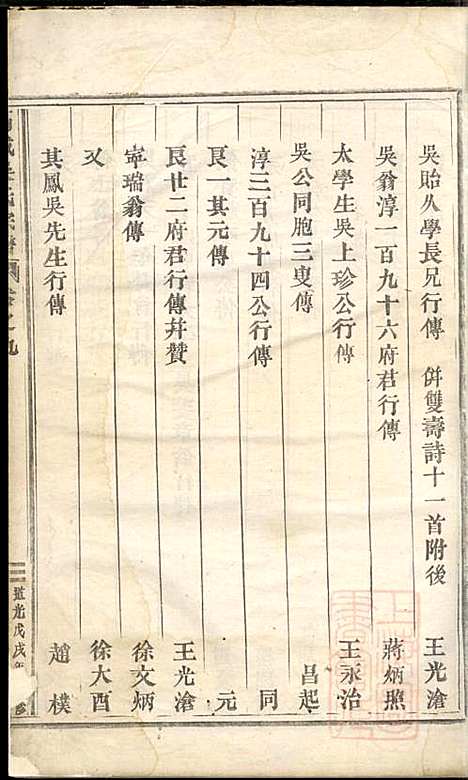 吳貽久學長兄行傳 併雙壽詩十一首附後 王光滄
吳翁淳一百九十六府君行傳 蔣炳照
太學生吳上珍公行傳 王永治
吳公同胞三叟傳 昌起
淳三百九十四公行傳 同
艮一其元傳 元
艮廿二府君行傳幷贊 王光滄
宰瑞翁傳 徐文炳
又 徐大酉
其鳳吳先生行傳 趙樸
卷之九
道光戊戌年